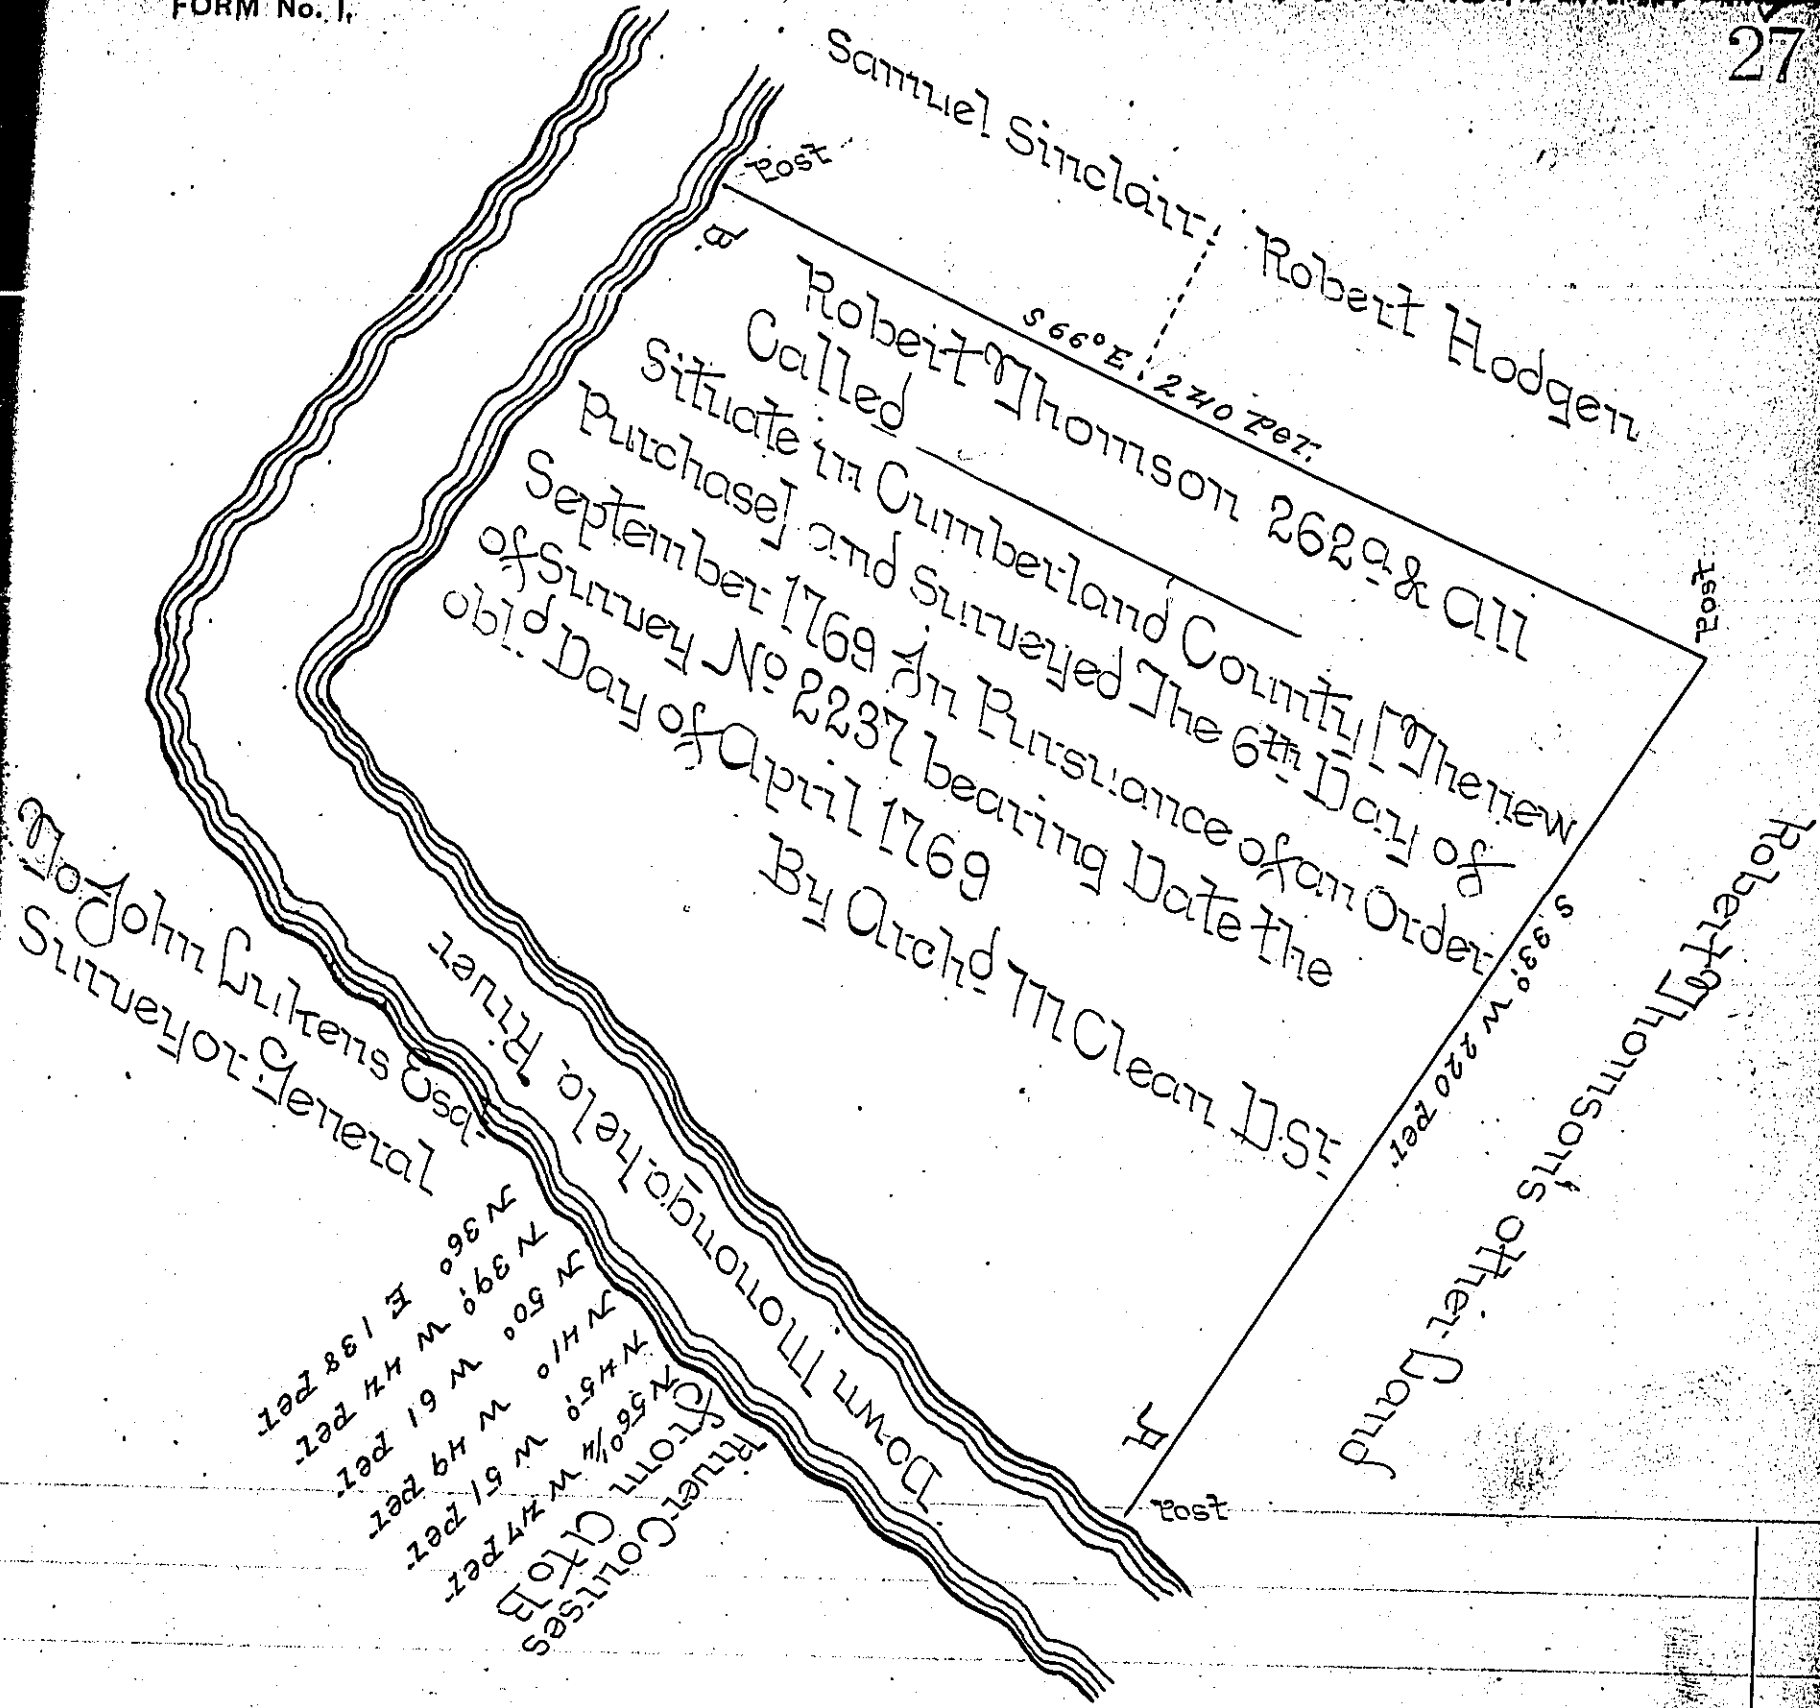 FORM No. 1.
27
Samuel Sinclair
Robert Hodgen
Post
B.
S 66° E 240 per.
Robert Thomson 262a & All
Called
Situate in Cumberland County [The new
Purchase] and Surveyed The 6th Day of
September 1769 In Pursuance of an Order
of Survey No 2237 bearing Date the
Day of April 1769
By Archd McClean D.Sr
Post
S 33° W 220 per
Robert Thomson's other Land
A
Post
Down Monongahela River
To John Lukens Esqr
Surveyor General
River Courses
from A to B
N 56° 1/4 W 47 per
N 45° W 51 per
N 41° W 49 per
N 50° W 61 per
N 39° W 44 per
N 36° E 138 per